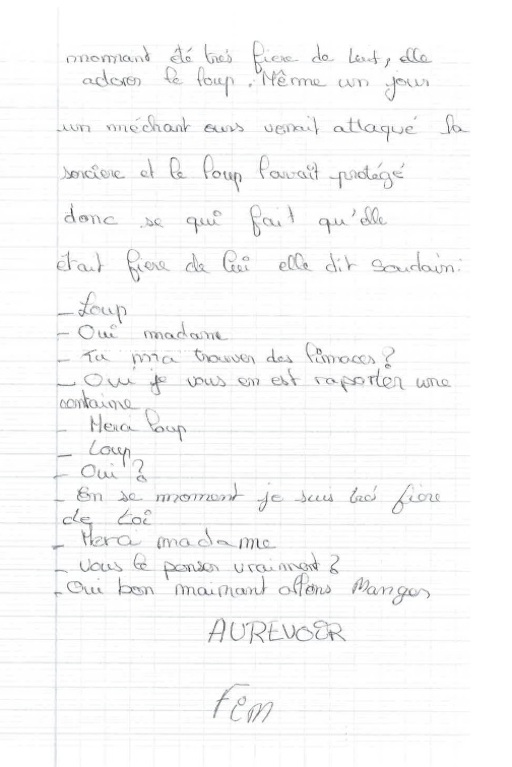 momant été trés fiere de lui, elle
adorer le loup. Même un jour
un méchant ours venait attaqué la
sorcière et le loup l'avait protégé
donc se qui fait qu'elle
était fiere de lui elle dit soudain:
- Loup
- Oui madame
- Tu m'a trouver des limaces?
- Oui je vous en est raporter une
centaine
- Merci loup
- Loup
- Oui?
- En se moment je suis trés fière
de toi
- Merci madame
- Vous le penser vraiment?
- Oui bon maintnant allons Manger
AUREVOIR